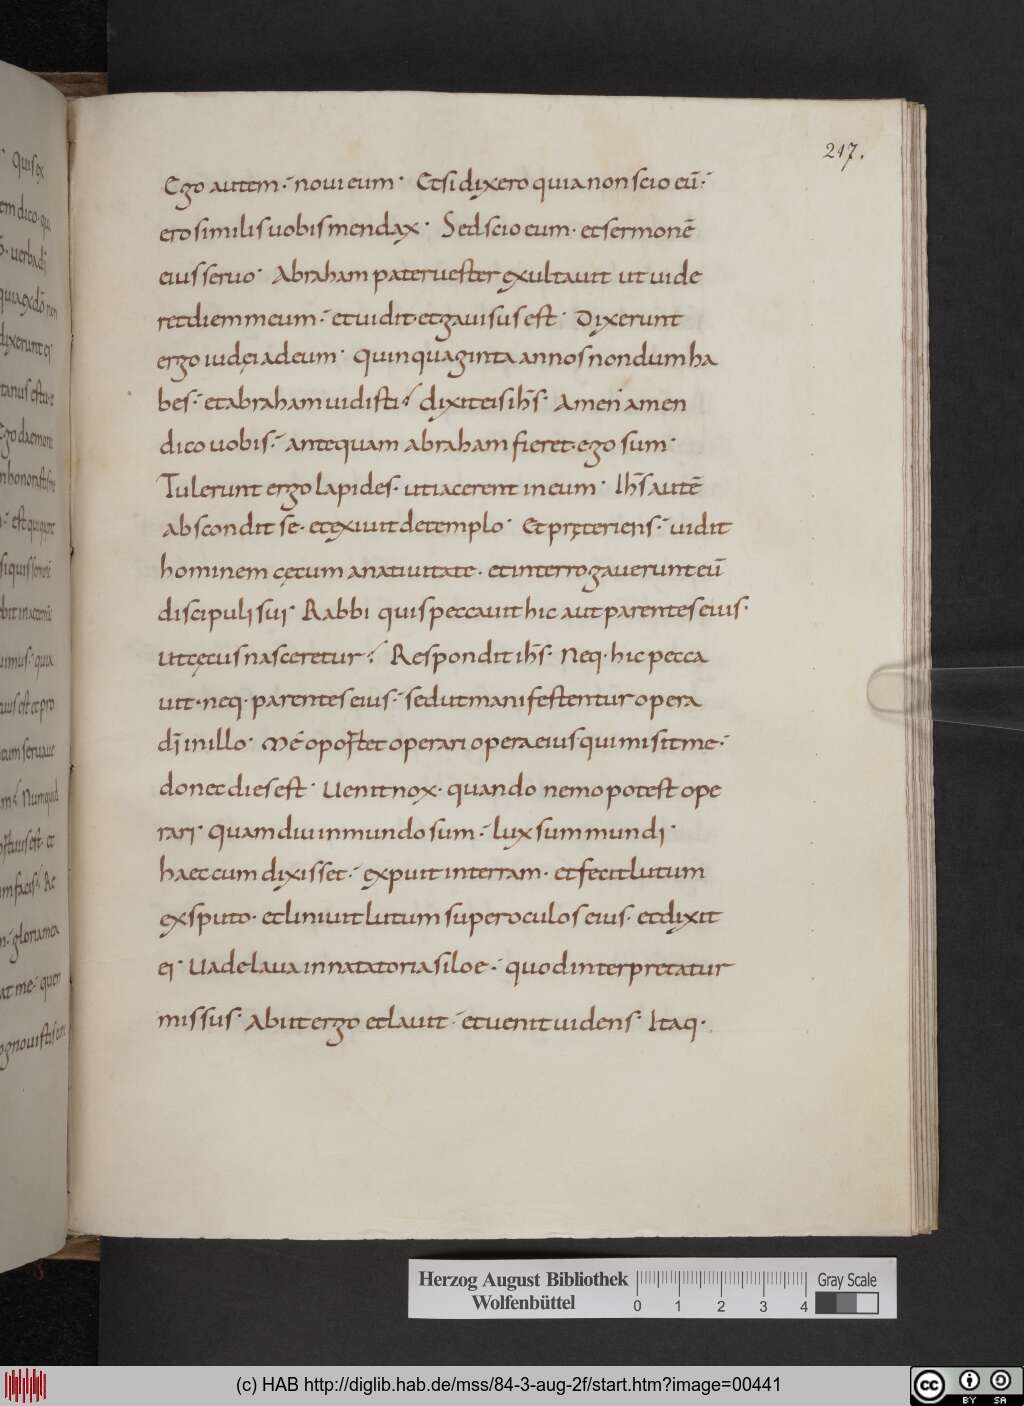 217.
Ego autem. noui eum. Et si dixero quia non scio eū.
ero similis uobis mendax. Sed scio eum. et sermonē
eius seruo. Abraham pater uester exultauit ut uide
ret diem meum. et uidit. et gauisus est. Dixerunt
ergo iudęi ad eum. Quinquaginta annos nondum ha
bes. et abraham uidisti? dixit eis ih̄s. Amen amen
dico uobis. antequam abraham fieret. ego sum.
Tulerunt ergo lapides. ut iacerent in eum. Ih̄s autē
abscondit se. et exiuit de templo. Et pręteriens. uidit
hominem cęcum a natiuitate. et interrogauerunt eū
discipuli sui. Rabbi quis peccauit hic aut parentes eius.
ut cęcus nasceretur? Respondit ih̄s. Neq. hic pecca
uit. neq. parentes eius. sed ut manifestentur opera
dī in illo. Me oportet operari opera eius qui misit me.
donec dies est. Uenit nox. quando nemo potest ope
rari. quamdiu in mundo sum. lux sum mundi.
haec cum dixisset. expuit in terram. et fecit lutum
ex sputo. et liniuit lutum super oculos eius. et dixit
ei. Uade laua in natatoria siloe. quod interpretatur
missus. Abiit ergo et lauit. et uenit uidens. Itaq.
Herzog August Bibliothek
Wolfenbüttel
0 1 2 3 4
Gray Scale
(c) HAB http://diglib.hab.de/mss/84-3-aug-2f/start.htm?image=00441
cc BY SA